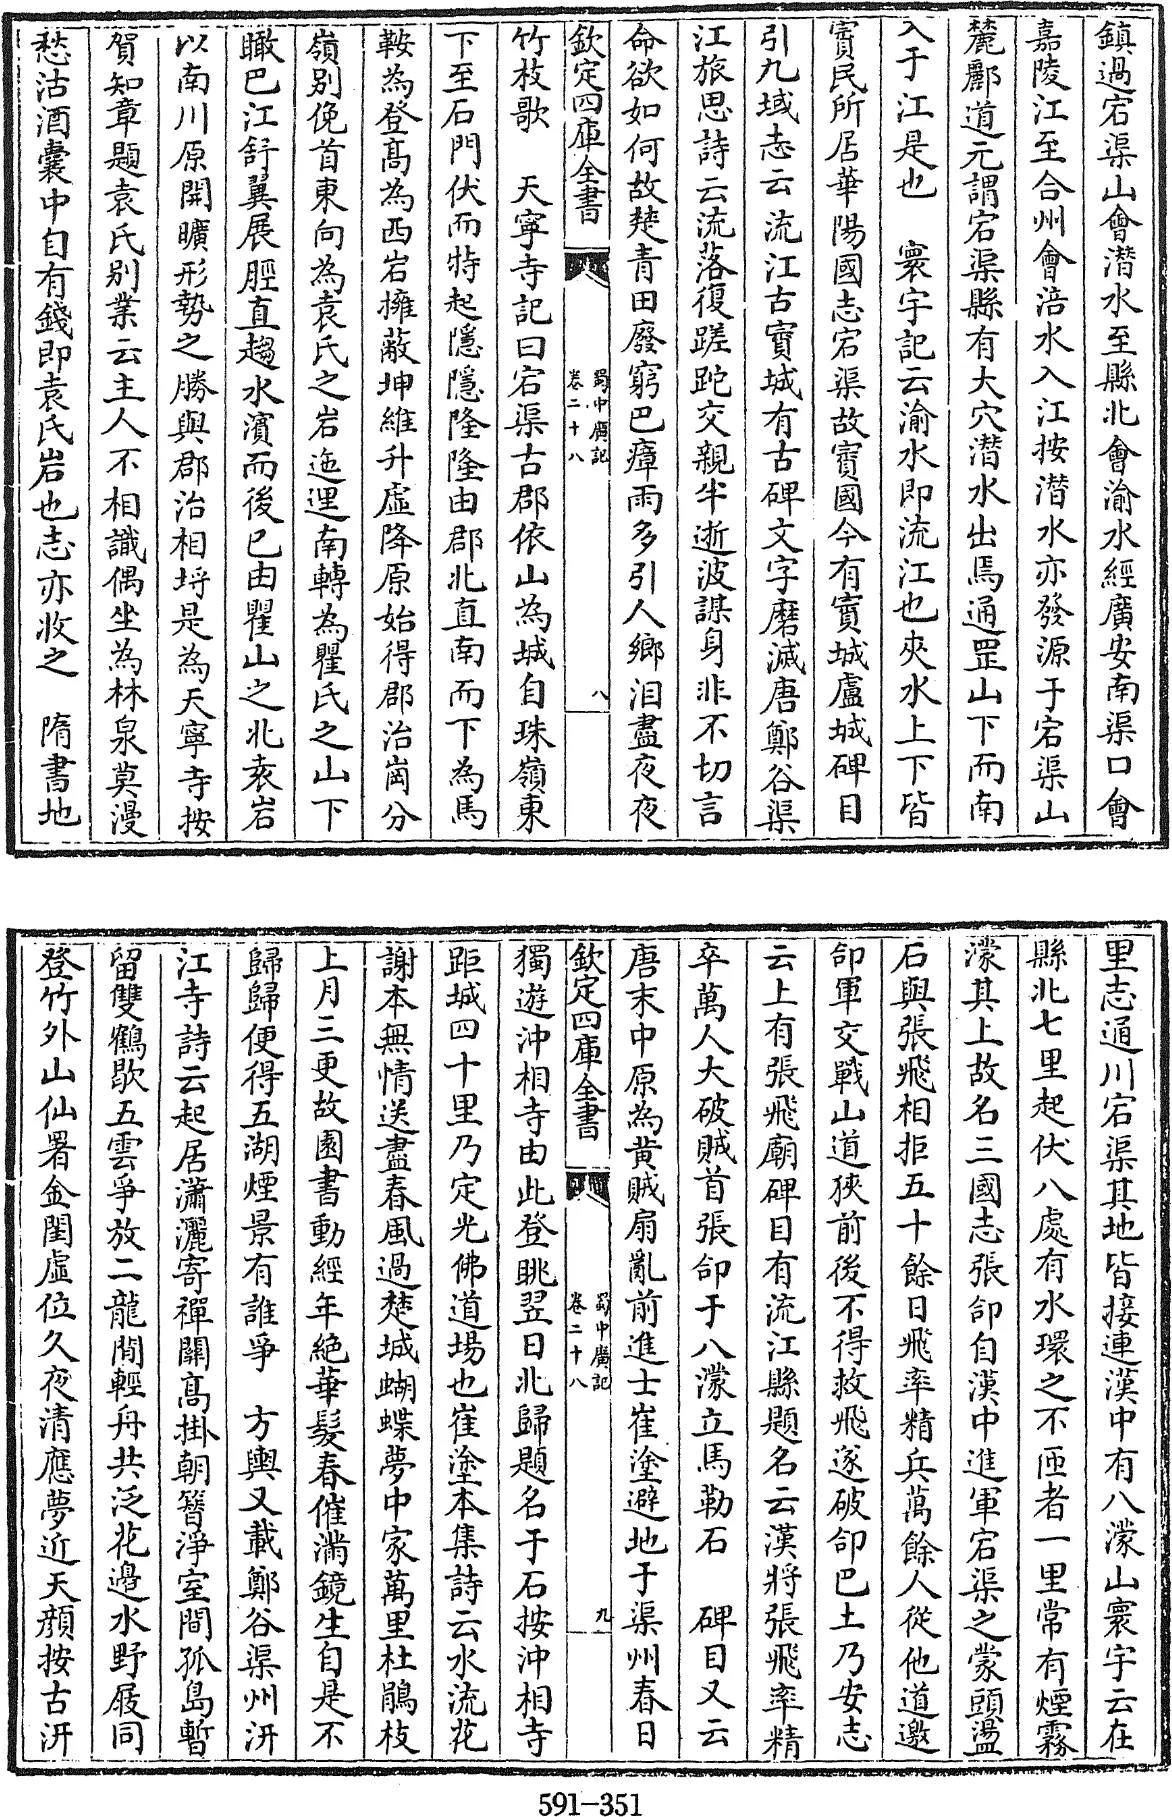 鎮過宕渠山會潛水至縣北會渝水經廣安南渠口會
嘉陵江至合州會涪水入江按潛水亦發源于宕渠山
麓酈道元謂宕渠縣有大穴潛水出焉通罡山下而南
入于江是也　寰宇記云渝水即流江也夾水上下皆
賨民所居華陽國志宕渠故賨國今有賨城盧城碑目
引九域志云流江古賨城有古碑文字磨滅唐鄭谷渠
江旅思詩云流落復蹉跎交親半逝波謀身非不切言
命欲如何故楚青田廢窮巴瘴雨多引人鄉泪盡夜夜
欽定四庫全書
蜀中廣記
卷二十八
八
竹枝歌　天寧寺記曰宕渠古郡依山為城自珠嶺東
下至石門伏而特起隱隱隆隆由郡北直南而下為馬
鞍為登髙為西岩擁蔽坤維升虛降原始得郡治崗分
嶺別俛首東向為袁氏之岩迤邐南轉為瞿氏之山下
瞰巴江舒翼展脛直趨水濱而後已由瞿山之北袁岩
以南川原開曠形勢之勝與郡治相埒是為天寧寺按
賀知章題袁氏别業云主人不相識偶坐為林泉莫漫
愁沽酒囊中自有錢即袁氏岩也志亦收之　隋書地
里志通川宕渠其地皆接連漢中有八濛山寰宇云在
縣北七里起伏八處有水環之不匝者一里常有煙霧
濛其上故名三國志張郃自漢中進軍宕渠之蒙頭盪
石與張飛相拒五十餘日飛率精兵萬餘人從他道邀
郃軍交戰山道狹前後不得救飛遂破郃巴土乃安志
云上有張飛廟碑目有流江縣題名云漢將張飛率精
卒萬人大破賊首張郃于八濛立馬勒石　碑目又云
唐末中原為黄賊扇亂前進士崔塗避地于渠州春日
欽定四庫全書
蜀中廣記
卷二十八
九
獨遊沖相寺由此登眺翌日北歸題名于石按沖相寺
距城四十里乃定光佛道場也崔塗本集詩云水流花
謝本無情送盡春風過楚城蝴蝶夢中家萬里杜鵑枝
上月三更故園書動經年絶華髮春催滿鏡生自是不
歸歸便得五湖煙景有誰爭　方輿又載鄭谷渠州汧
江寺詩云起居瀟灑寄禪關髙掛朝簪淨室間孤島暫
留雙鶴歇五雲爭放二龍閒輕舟共泛花邉水野屐同
登竹外山仙署金閨虛位久夜清應夢近天顔按古汧
591-351